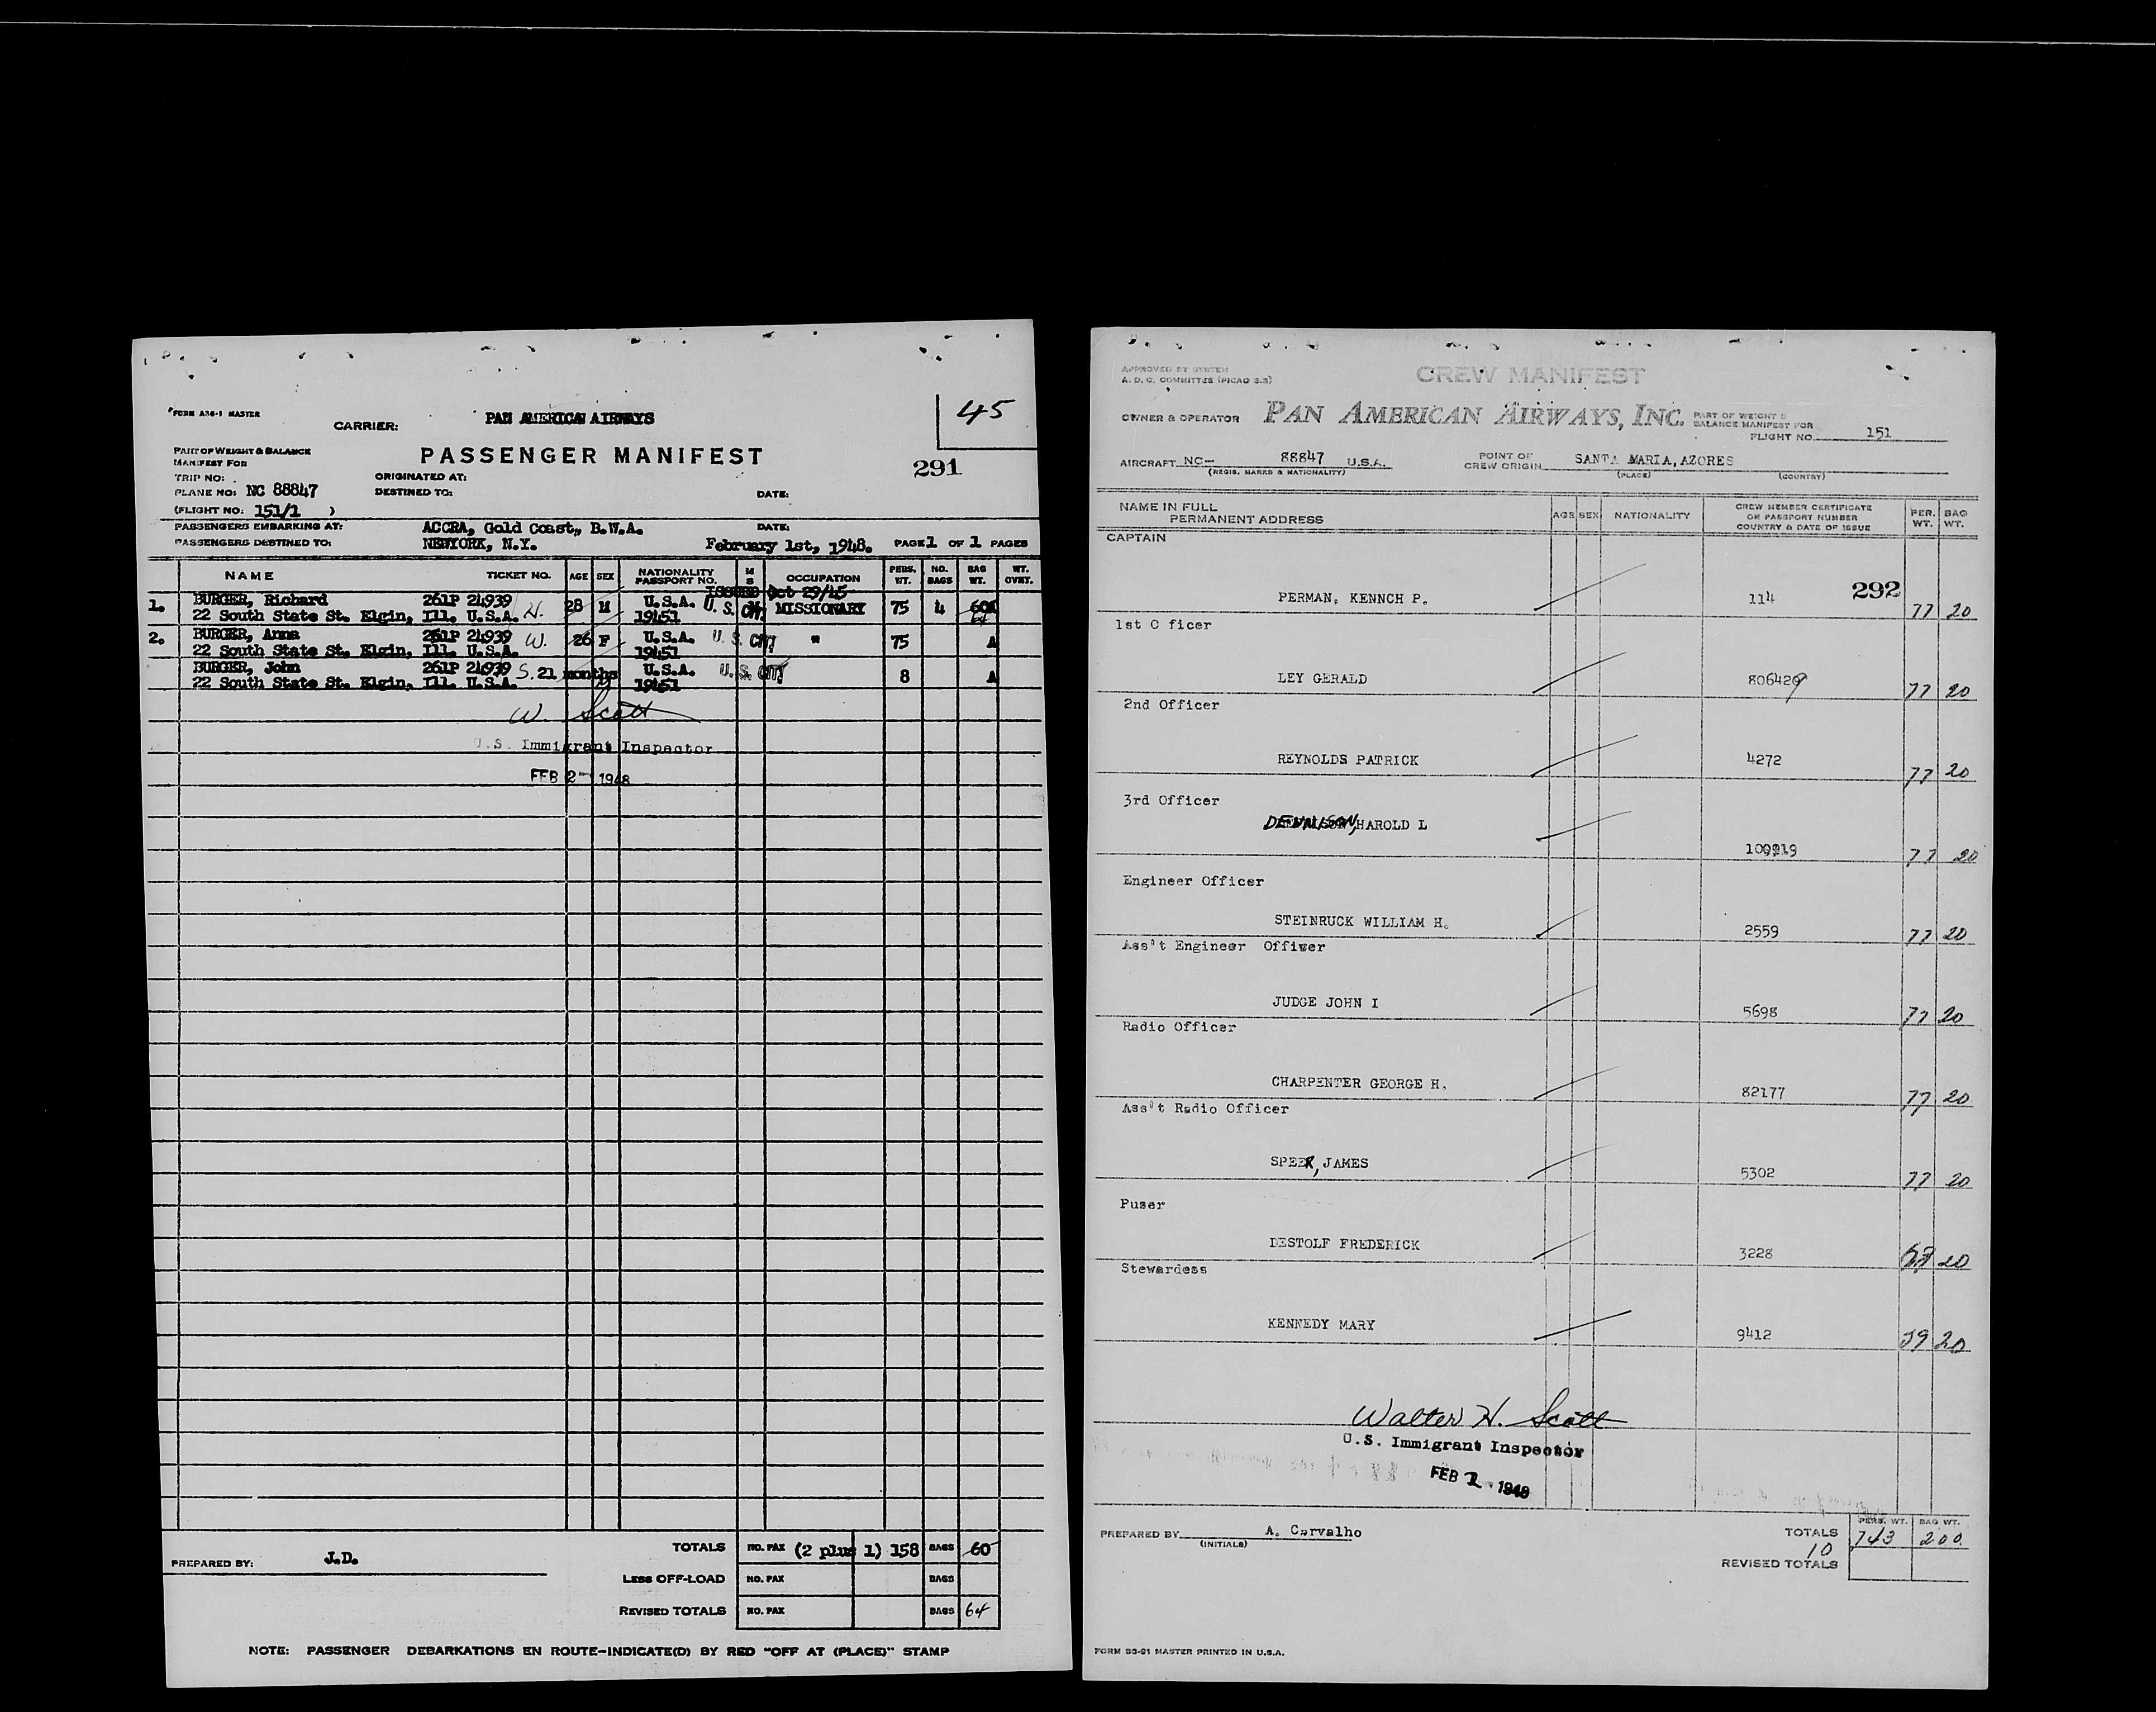 FORM A36-1 MASTER
CARRIER: PAN AMERICAN AIRWAYS
45
PART OF WEIGHT & BALANCE
MANIFEST FOR
PASSENGER MANIFEST
291
TRIP NO:
ORIGINATED AT:
PLANE NO: NC 88847
DESTINED TO:
DATE:
(FLIGHT NO: 151/1 )
PASSENGERS EMBARKING AT: ACCRA, Gold Coast, B.W.A. DATE:
PASSENGERS DESTINED TO: NEWYORK, N.Y. February 1st, 1948. PAGE 1 OF 1 PAGES
NAME TICKET NO. AGE SEX NATIONALITY PASSPORT NO. M S OCCUPATION PERS. WT. NO. BAGS BAG WT. WT. OVRT.
ISSUED Oct 29/45
1. BURGER, Richard 261P 24939 H. 28 M U.S.A. U.S. CIT. MISSIONARY 75 4 60
22 South State St. Elgin, Ill. U.S.A. 19451 64
2. BURGER, Anna 261P 24939 W. 26 F U.S.A. U.S. CIT. " 75 A
22 South State St. Elgin, Ill. U.S.A. 19451
BURGER, John 261P 24939 S. 21 months U.S.A. U.S. CIT 8 A
22 South State St. Elgin, Ill. U.S.A. 19451
W. Scott
U.S. Immigrant Inspector
FEB 2 - 1948
TOTALS NO. PAX (2 plus 1) 158 BAGS 60
PREPARED BY: J.D.
LESS OFF-LOAD NO. PAX BAGS
REVISED TOTALS NO. PAX BAGS 64
NOTE: PASSENGER DEBARKATIONS EN ROUTE-INDICATE(D) BY RED "OFF AT (PLACE)" STAMP
APPROVED BY SYSTEM
A. D. C. COMMITTEE (PICAO 3.5)
CREW MANIFEST
OWNER & OPERATOR PAN AMERICAN AIRWAYS, INC.
PART OF WEIGHT &
BALANCE MANIFEST FOR
FLIGHT NO. 151
AIRCRAFT NC- 88847 U.S.A.
(REGIS. MARKS & NATIONALITY)
POINT OF
CREW ORIGIN SANTA MARIA, AZORES
(PLACE) (COUNTRY)
NAME IN FULL
PERMANENT ADDRESS
AGE SEX NATIONALITY
CREW MEMBER CERTIFICATE
OR PASSPORT NUMBER
COUNTRY & DATE OF ISSUE
PER. WT. BAG WT.
CAPTAIN
292
PERMAN, KENNCH P. 114 77 20
1st O ficer
LEY GERALD 806429 77 20
2nd Officer
REYNOLDS PATRICK 4272 77 20
3rd Officer
DENNISON, HAROLD L 77 20
Engineer Officer
STEINRUCK WILLIAM H. 2559 77 20
Ass't Engineer Officer
JUDGE JOHN I 5698 77 20
Radio Officer
CHARPENTER GEORGE H. 82177 77 20
Ass't Radio Officer
SPEER, JAMES 5302 77 20
Puser
DESTOLF FREDERICK 3228 20
Stewardess
KENNEDY MARY 9412 59 20
Walter H. Scott
U.S. Immigrant Inspector
FEB 2 - 1948
PREPARED BY A. Carvalho
(INITIALS)
PERS. WT. BAG WT.
TOTALS 743 200
10
REVISED TOTALS
FORM 36-91 MASTER PRINTED IN U.S.A.